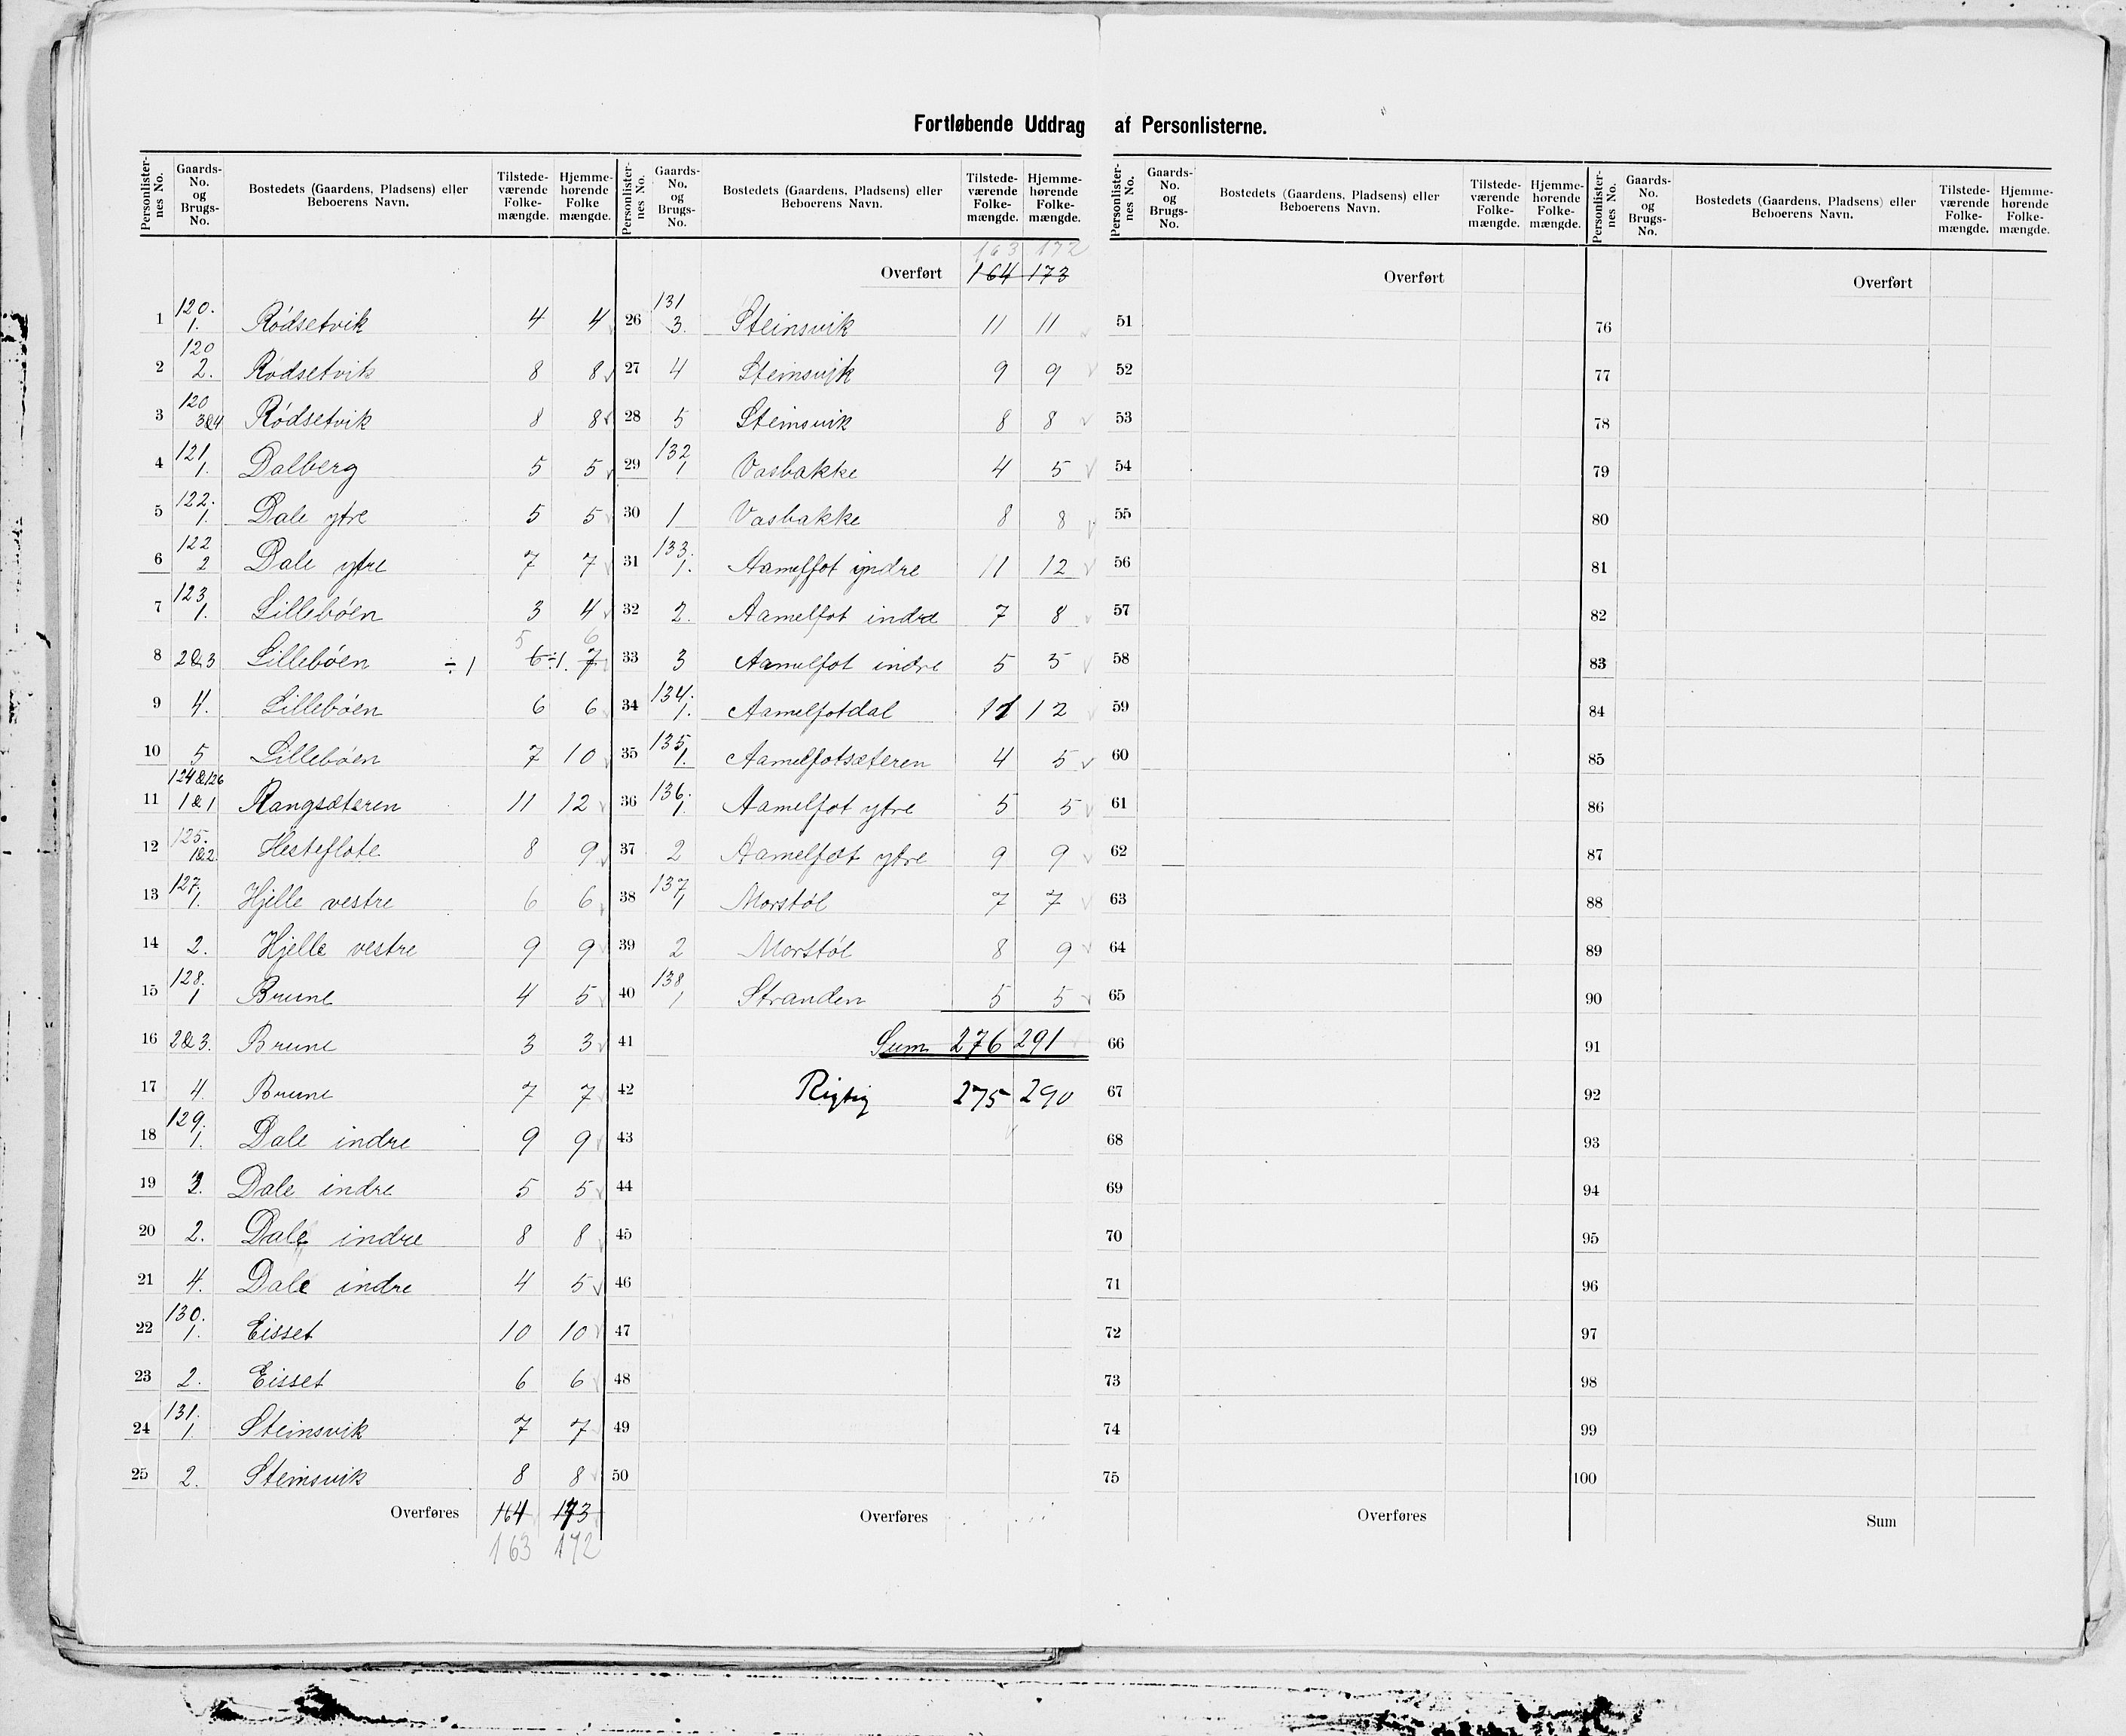 Fortløbende Uddrag af Personlisterne.
Personlister-nes No. | Gaards-No. og Brugs-No. | Bostedets (Gaardens, Pladsens) eller Beboerens Navn. | Tilstede-værende Folke-mængde. | Hjemme-hørende Folke mængde.
1 | 120. 1. | Rødsetvik | 4 | 4
2 | 120 2. | Rødsetvik | 8 | 8
3 | 120 3&4 | Rødsetvik | 8 | 8
4 | 121 1. | Dalberg | 5 | 5
5 | 122. 1. | Dale ytre | 5 | 5
6 | 122 2 | Dale ytre | 7 | 7
7 | 123 1. | Lillebøen | 3 | 4
8 | 2&3 | Lillebøen ÷1 | 5 6÷1. | 6 7
9 | 4. | Lillebøen | 6 | 6
10 | 5 | Lillebøen | 7 | 10
11 | 124&126 1&1 | Rangsæteren | 11 | 12
12 | 125. 1&2 | Hesteflote | 8 | 9
13 | 127. 1. | Hjelle vestre | 6 | 6
14 | 2. | Hjelle vestre | 9 | 9
15 | 128. 1 | Brune | 4 | 5
16 | 2&3. | Brune | 3 | 3
17 | 4. | Brune | 7 | 7
18 | 129. 1. | Dale indre | 9 | 9
19 | 3. | Dale indre | 5 | 5
20 | 2. | Dale indre | 8 | 8
21 | 4. | Dale indre | 4 | 5
22 | 130. 1. | Eisset | 10 | 10
23 | 2. | Eisset | 6 | 6
24 | 131. 1 | Steinsvik | 7 | 7
25 | 2. | Steinsvik | 8 | 8
Overføres | 164 | 173
163 | 172
Personlister-nes No. | Gaards-No. og Brugs-No. | Bostedets (Gaardens, Pladsens) eller Beboerens Navn. | Tilstede-værende Folke-mængde. | Hjemme-hørende Folke-mængde.
163 | 172
Overført | 164 | 173
26 | 131 3. | Steinsvik | 11 | 11
27 | 4 | Steinsvik | 9 | 9
28 | 5 | Steinsvik | 8 | 8
29 | 132 1 | Vasbakke | 4 | 5
30 | 1 | Vasbakke | 8 | 8
31 | 133. 1. | Aamelfot indre | 11 | 12
32 | 2. | Aamelfot indre | 7 | 8
33 | 3 | Aamelfot indre | 5 | 5
34 | 134. 1. | Aamelfotdal | 11 | 12
35 | 135 1. | Aamelfotsæteren | 4 | 5
36 | 136. 1. | Aamelfot ytre | 5 | 5
37 | 2 | Aamelfot ytre | 9 | 9
38 | 137 1 | Morstøl | 7 | 7
39 | 2 | Morstøl | 8 | 9
40 | 138 1 | Stranden | 5 | 5
41 | Sum | 276 | 291
42 | Rigtig | 275 | 290
43
44
45
46
47
48
49
50
Overføres
Personlister-nes No. | Gaards-No. og Brugs-No. | Bostedets (Gaardens, Pladsens) eller Beboerens Navn. | Tilstede-værende Folke-mængde. | Hjemme-hørende Folke-mængde.
Overført
51
52
53
54
55
56
57
58
59
60
61
62
63
64
65
66
67
68
69
70
71
72
73
74
75
Overføres
Personlister-nes No. | Gaards-No. og Brugs-No. | Bostedets (Gaardens, Pladsens) eller Beboerens Navn. | Tilstede-værende Folke-mængde. | Hjemme-hørende Folke-mængde.
Overført
76
77
78
79
80
81
82
83
84
85
86
87
88
89
90
91
92
93
94
95
96
97
98
99
100
Sum